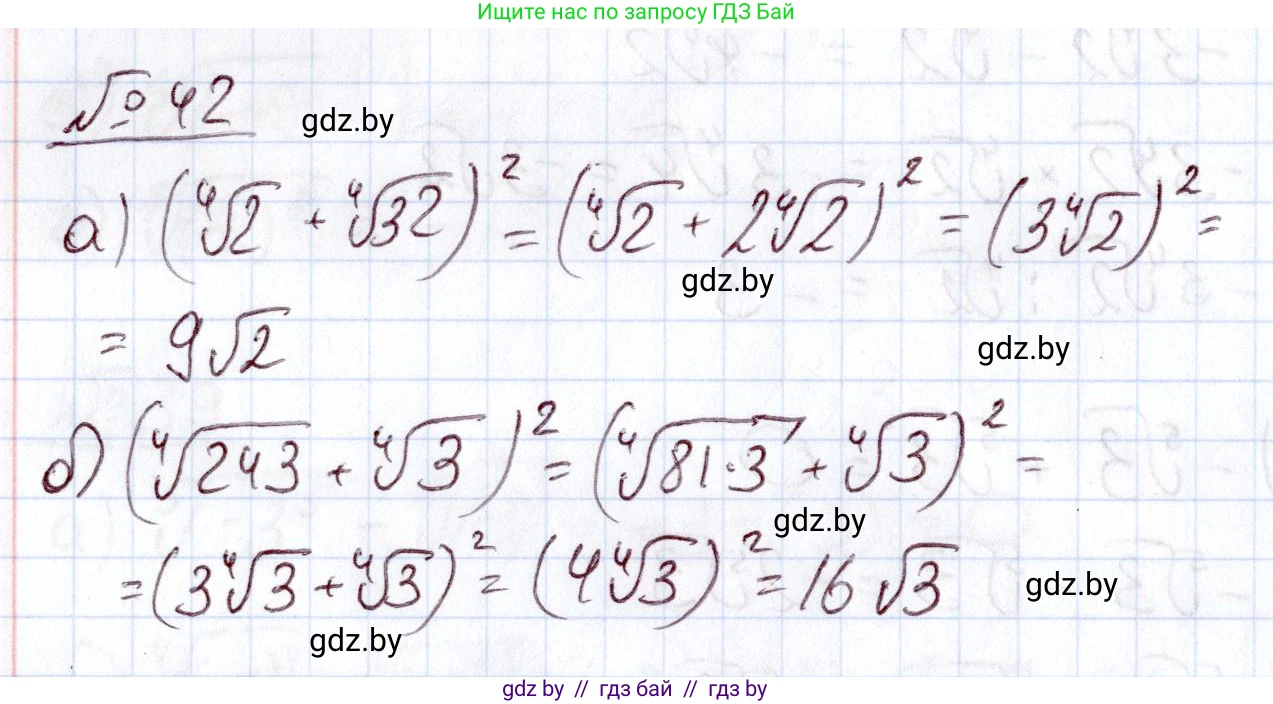 Ищите нас по запросу ГДЗ Бай
№ 42
gdz.by
а) (∜2 + ∜32)² = (∜2 + 2∜2)² = (3∜2)² =
gdz.by
= 9√2
gdz.by
б) (∜243 + ∜3)² = (∜81·3 + ∜3)² =
gdz.by
= (3∜3 + ∜3)² = (4∜3)² = 16√3
gdz.by
gdz.by
gdz by // гдз бай // гдз by